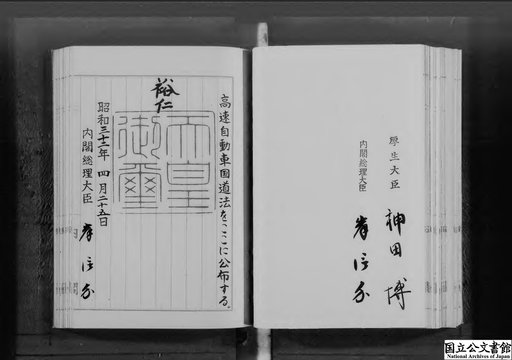 厚生大臣 神田 博
内閣総理大臣 岸信介
高速自動車国道法をここに公布する。
裕仁
天皇御璽
昭和三十二年 四月二十五日
内閣総理大臣 岸信介
国立公文書館
National Archives of Japan